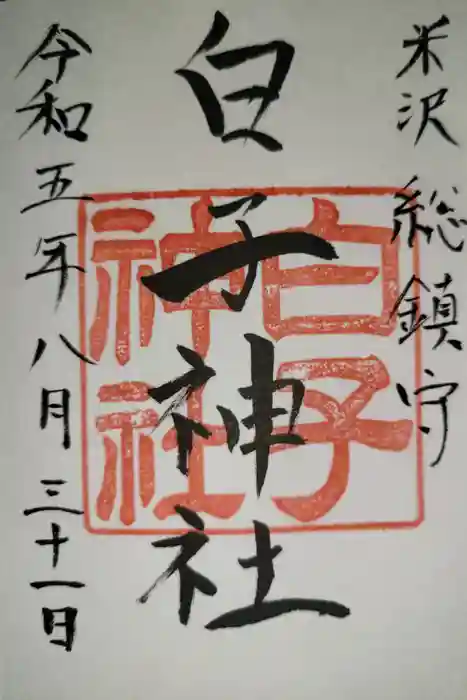 米沢 総鎮守
白子神社
白子神社
令和五年八月三十一日